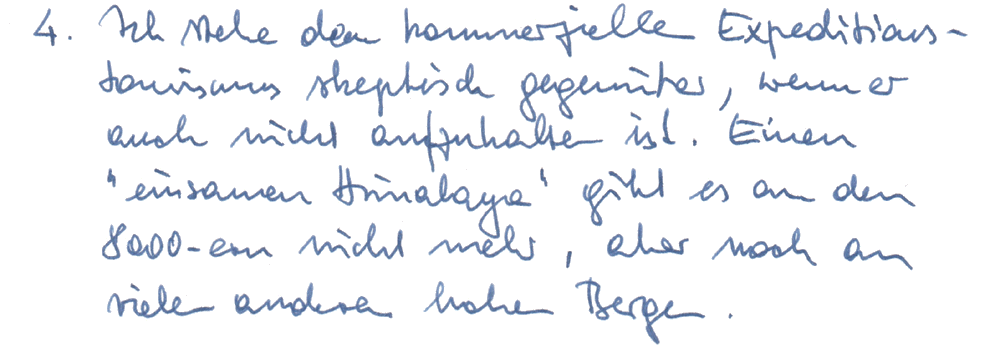 4. Ich stehe dem kommerzielle Expeditions-
tourismus skeptisch gegenüber, wenn er
auch nicht aufzuhalten ist. Einen
"einsamen Himalaya" gibt es an den
8000-ern nicht mehr, aber noch an
vielen anderen hohen Bergen.